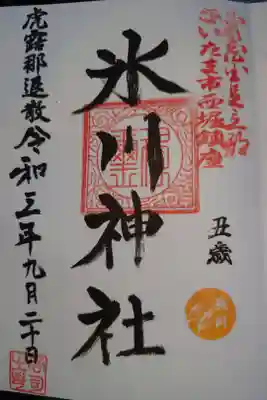 武蔵国足立郡
さいたま市西堀鎮座
丑歳
氷川神社
虎露那退散
令和三年九月二十日